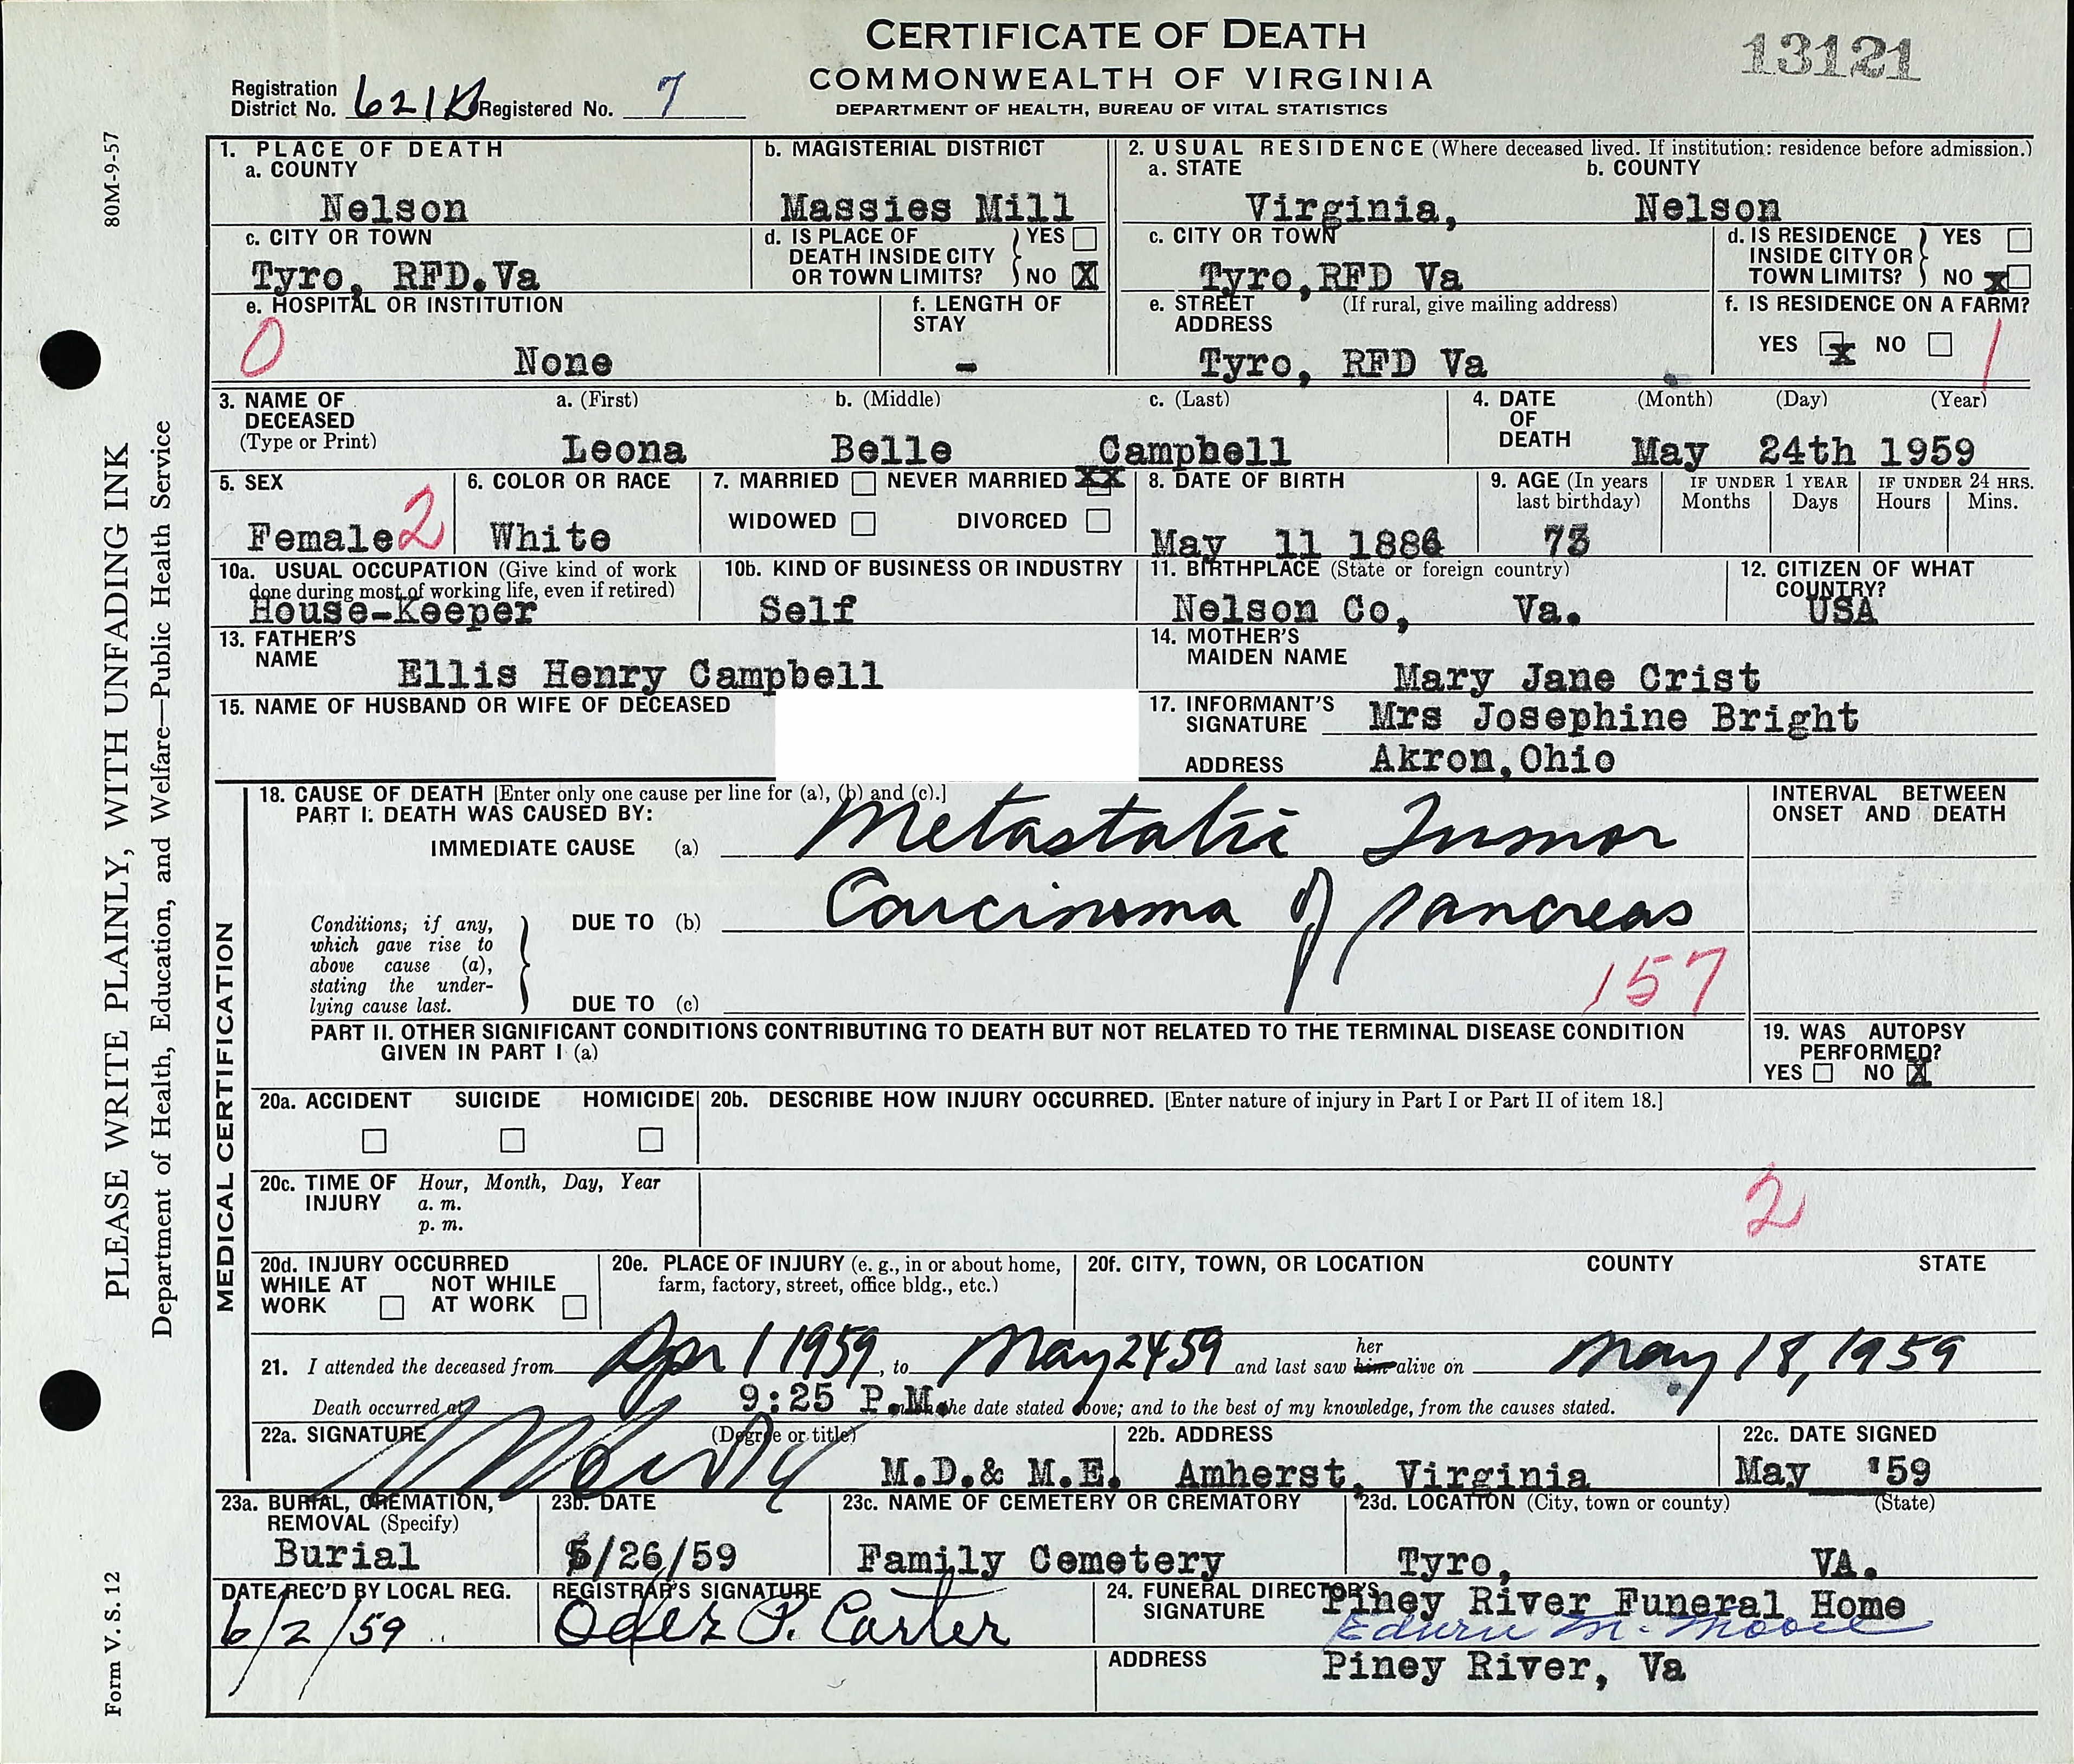 CERTIFICATE OF DEATH
COMMONWEALTH OF VIRGINIA
DEPARTMENT OF HEALTH, BUREAU OF VITAL STATISTICS
13121
Registration District No. 621K Registered No. 7
80M-9-57
PLEASE WRITE PLAINLY, WITH UNFADING INK
Department of Health, Education, and Welfare—Public Health Service
Form V. S. 12
1. PLACE OF DEATH
a. COUNTY
Nelson
b. MAGISTERIAL DISTRICT
Massies Mill
2. USUAL RESIDENCE (Where deceased lived. If institution: residence before admission.)
a. STATE
Virginia,
b. COUNTY
Nelson
c. CITY OR TOWN
Tyro, RFD.Va
d. IS PLACE OF DEATH INSIDE CITY OR TOWN LIMITS? YES NO X
c. CITY OR TOWN
Tyro,RFD Va
d. IS RESIDENCE INSIDE CITY OR TOWN LIMITS? YES NO x
e. HOSPITAL OR INSTITUTION
0
None
f. LENGTH OF STAY
-
e. STREET ADDRESS (If rural, give mailing address)
Tyro, RFD Va
f. IS RESIDENCE ON A FARM?
YES x NO
1
3. NAME OF DECEASED (Type or Print)
a. (First) b. (Middle) c. (Last)
Leona Belle Campbell
4. DATE OF DEATH (Month) (Day) (Year)
May 24th 1959
5. SEX
Female 2
6. COLOR OR RACE
White
7. MARRIED NEVER MARRIED XX
WIDOWED DIVORCED
8. DATE OF BIRTH
May 11 1886
9. AGE (In years last birthday)
73
IF UNDER 1 YEAR
Months Days
IF UNDER 24 HRS.
Hours Mins.
10a. USUAL OCCUPATION (Give kind of work done during most of working life, even if retired)
House-Keeper
10b. KIND OF BUSINESS OR INDUSTRY
Self
11. BIRTHPLACE (State or foreign country)
Nelson Co, Va.
12. CITIZEN OF WHAT COUNTRY?
USA
13. FATHER'S NAME
Ellis Henry Campbell
14. MOTHER'S MAIDEN NAME
Mary Jane Crist
15. NAME OF HUSBAND OR WIFE OF DECEASED
17. INFORMANT'S SIGNATURE Mrs Josephine Bright
ADDRESS Akron,Ohio
MEDICAL CERTIFICATION
18. CAUSE OF DEATH [Enter only one cause per line for (a), (b) and (c).]
PART I. DEATH WAS CAUSED BY:
IMMEDIATE CAUSE (a) Metastatic Tumor
INTERVAL BETWEEN ONSET AND DEATH
Conditions, if any, which gave rise to above cause (a), stating the underlying cause last.
DUE TO (b) Carcinoma of pancreas
157
DUE TO (c)
PART II. OTHER SIGNIFICANT CONDITIONS CONTRIBUTING TO DEATH BUT NOT RELATED TO THE TERMINAL DISEASE CONDITION GIVEN IN PART I (a)
19. WAS AUTOPSY PERFORMED?
YES NO X
20a. ACCIDENT SUICIDE HOMICIDE
20b. DESCRIBE HOW INJURY OCCURRED. [Enter nature of injury in Part I or Part II of item 18.]
20c. TIME OF INJURY Hour, Month, Day, Year
a. m.
p. m.
2
20d. INJURY OCCURRED
WHILE AT WORK NOT WHILE AT WORK
20e. PLACE OF INJURY (e. g., in or about home, farm, factory, street, office bldg., etc.)
20f. CITY, TOWN, OR LOCATION COUNTY STATE
21. I attended the deceased from Apr 1 1959, to May 24 59 and last saw her him alive on May 18, 1959
Death occurred at 9:25 P.M. the date stated above; and to the best of my knowledge, from the causes stated.
22a. SIGNATURE (Degree or title)
M.D.& M.E.
22b. ADDRESS
Amherst, Virginia
22c. DATE SIGNED
May '59
23a. BURIAL, CREMATION, REMOVAL (Specify)
Burial
23b. DATE
5/26/59
23c. NAME OF CEMETERY OR CREMATORY
Family Cemetery
23d. LOCATION (City, town or county) (State)
Tyro, VA.
DATE REC'D BY LOCAL REG.
6/2/59
REGISTRAR'S SIGNATURE
P. Carter
24. FUNERAL DIRECTOR'S SIGNATURE
Piney River Funeral Home
M. Moore
ADDRESS Piney River, Va